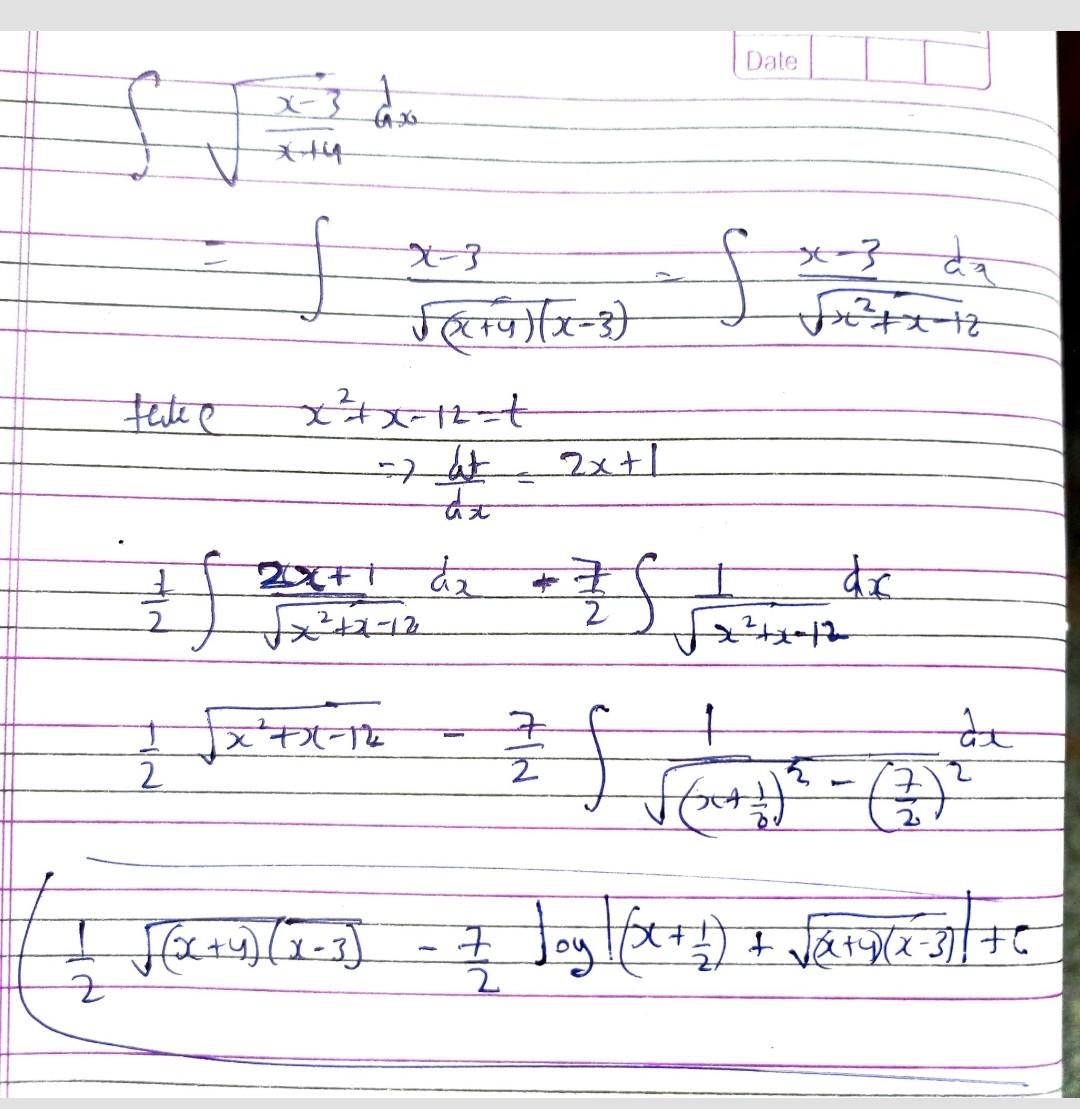 Date
∫ √((x-3)/(x+4)) dx
= ∫ (x-3)/√((x+4)(x-3)) = ∫ (x-3)/√(x²+x-12) dx
take x²+x-12=t
=> dt/dx = 2x+1
1/2 ∫ (2x+1)/√(x²+x-12) dx + 7/2 ∫ 1/√(x²+x-12) dx
1/2 √(x²+x-12) - 7/2 ∫ 1/√((x+1/2)² - (7/2)²) dx
1/2 √((x+4)(x-3)) - 7/2 log|(x+1/2) + √((x+4)(x-3))| + c